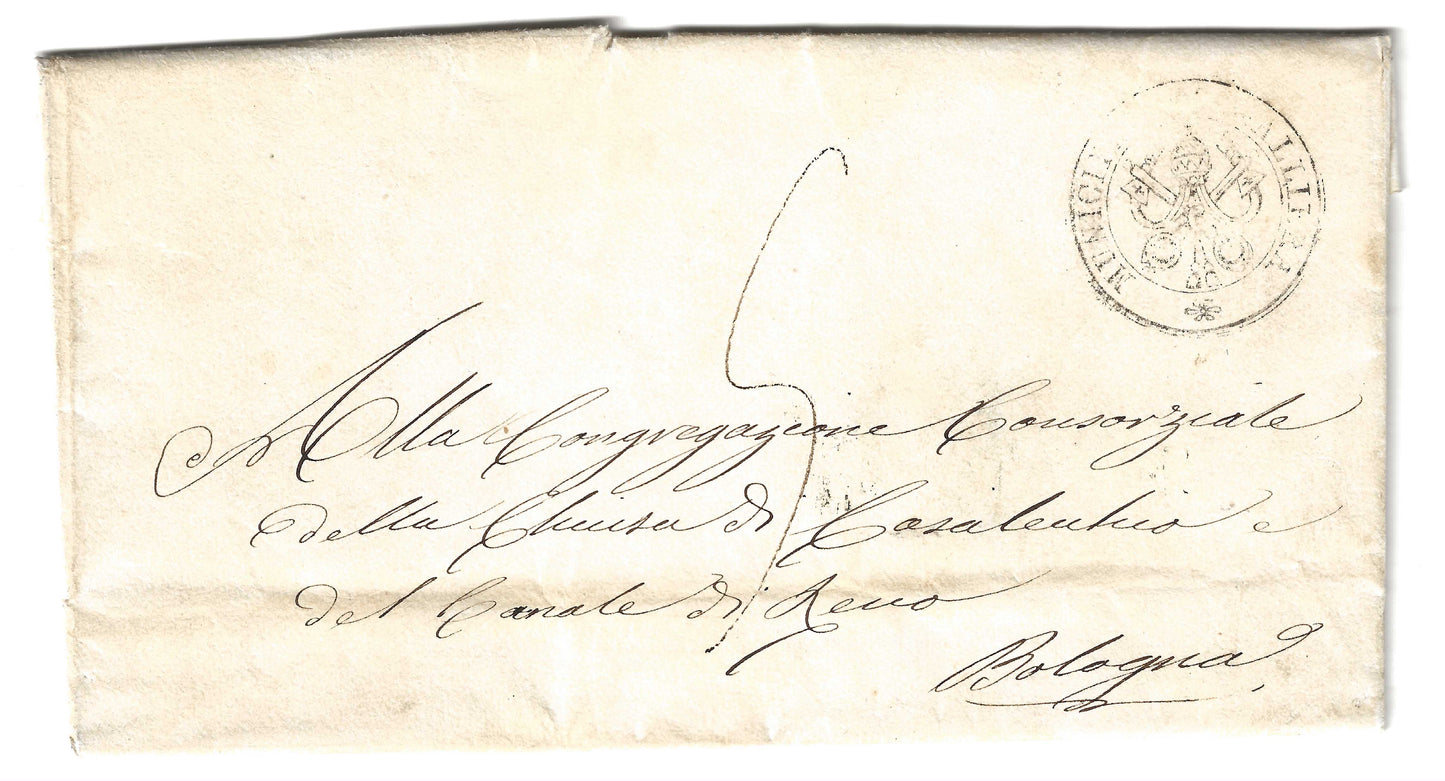 MUNICI ALLIERA
5
Alla Congregazione Consorziale
della Chiusa di Casalecchio e
del Canale di Reno
Bologna